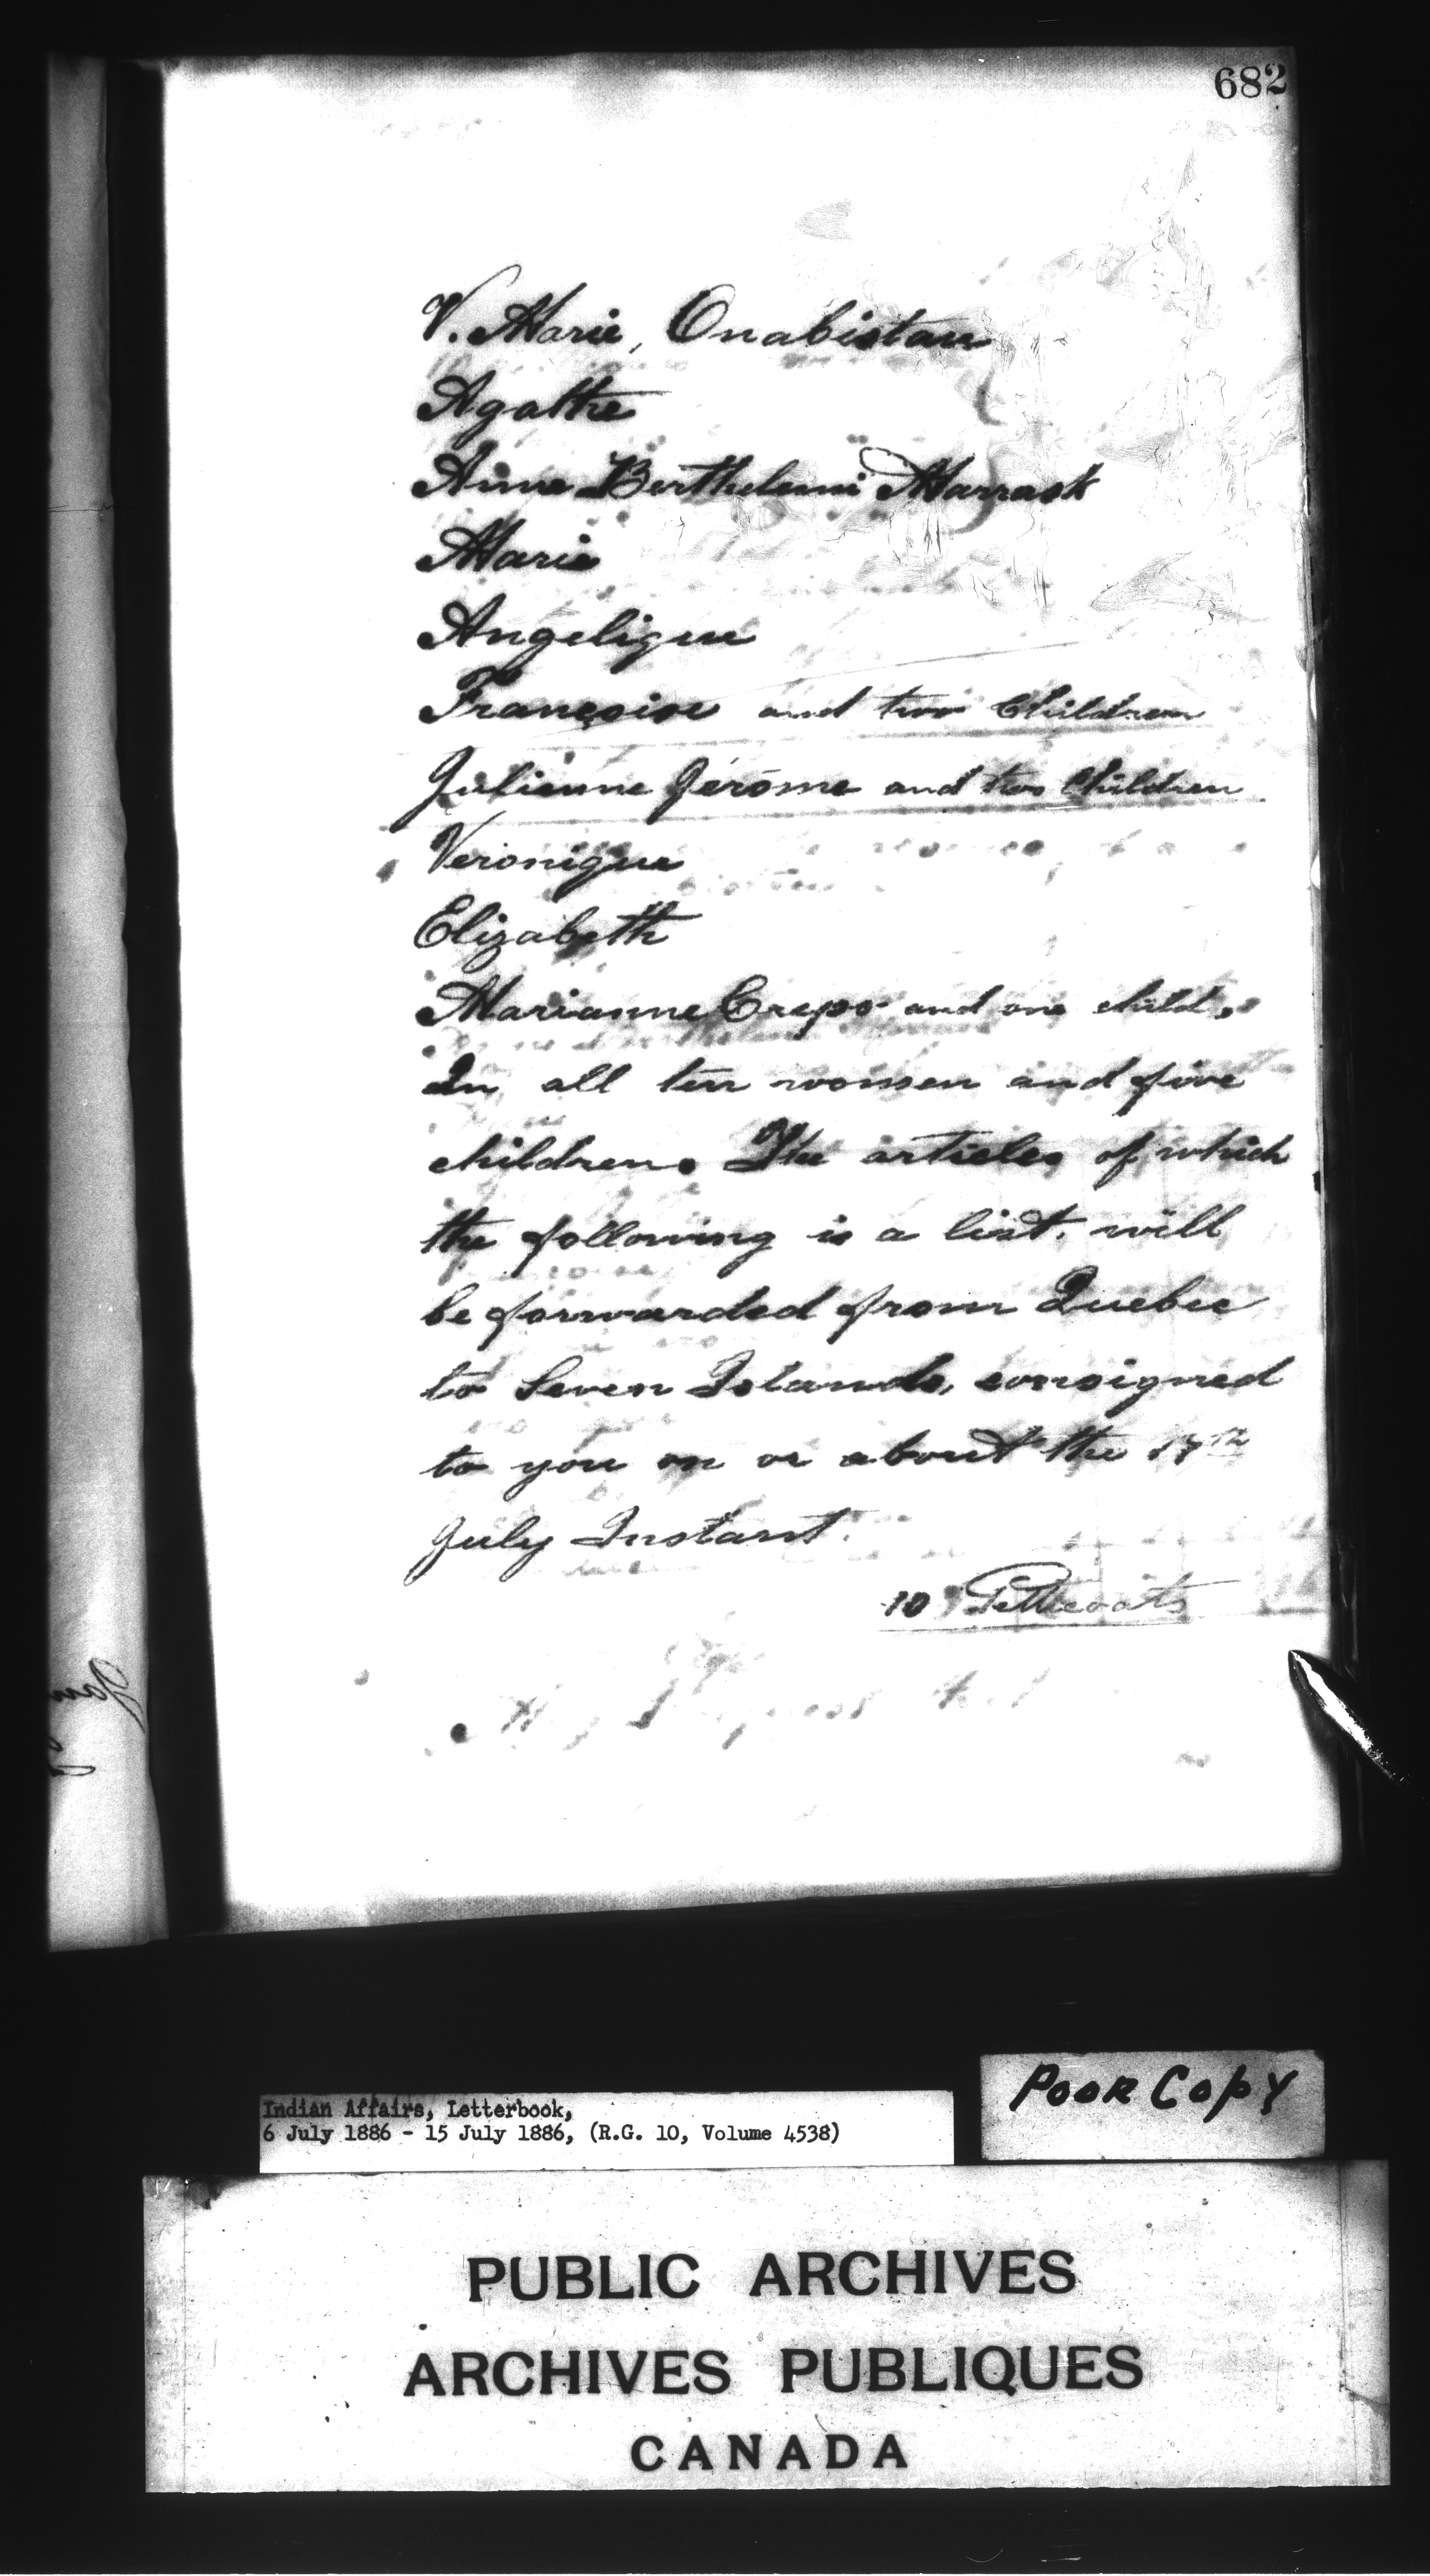 682
V. Marie, Onabistau
Agathe
Anne Berthelemi Marrask
Marie
Angelique
Françoise and two Children
Julienne Jérôme and two Children
Veronique
Elizabeth
Marianne Crepo and one child.
In all ten women and five
children. The articles of which
the following is a list, will
be forwarded from Quebec
to Seven Islands, consigned
to you on or about the 17th
July Instant.
10 Petticoats
Poor Copy
Indian Affairs, Letterbook,
6 July 1886 - 15 July 1886, (R.G. 10, Volume 4538)
PUBLIC ARCHIVES
ARCHIVES PUBLIQUES
CANADA